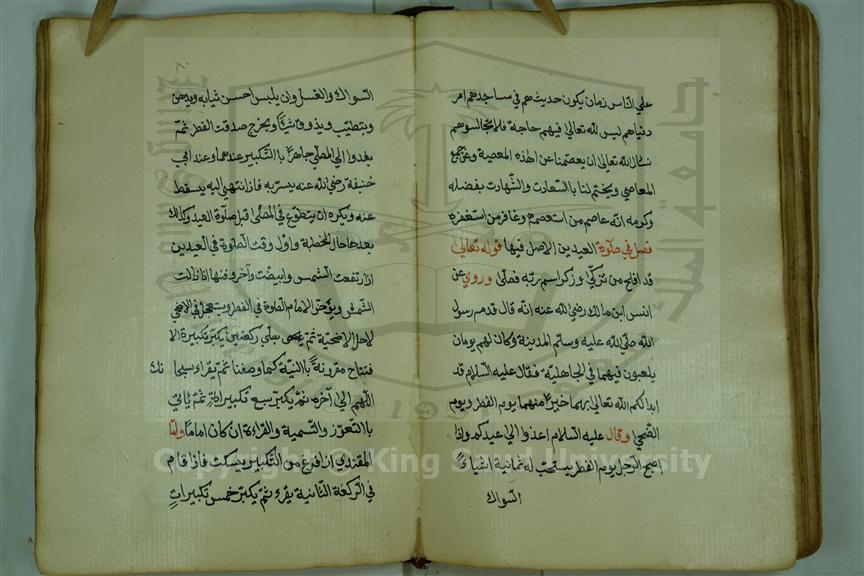 علي الناس زمان يكون حديثهم في مساجدهم امر
دنياهم ليس لله تعالي فيهم حاجة فلا تجالسوهم
نسال الله تعالي ان يعصمنا عن هذه المعصية وعن جميع
المعاصي ويختم لنا بالسعادت والشهادت بفضله
وكرمه انه عاصم من استعصمه وغافر من استغفره
فصل في صلوة العيدين الاصل فيها قوله تعالي
قد افلح من تزكي وذكر اسم ربه فصلي وروي عن
انس ابن مالك رضي الله عنه انه قال قدم رسول
الله صلي الله عليه وسلم المدينة وكان لهم يومان
يلعبون فيهما في الجاهلية فقال عليه السلام قد
ابدلكم الله تعالي بهما خيرا منهما يوم الفطر ويوم
الضحي وقال عليه السلام اغدوا الي عيدكم واذا
اصبح الرجل يوم الفطر يستحب له ثمانية اشياء
السواك
السواك والغسل وان يلبس احسن ثيابه ويدهن
ويتطيب ويذوق شيئا ويخرج صدقت الفطر ثم
يغدوا الي المصلي جاهرا بالتكبير عندهما وعند ابي
حنيفة رضي الله عنه يسر به فاذا انتهي اليه يسقط
عنه ويكره ان يتطوع في المصلي قبل صلوة العيد وكذلك
بعدها حال الخطبة واول وقت الصلوة في العيدين
اذا ارتفعت الشمس وابيضت وآخر وقتها اذا زالت
الشمس ويؤخر الامام الصلوة في الفطر ويعجل في الاضحي
لاجل الاضحية ثم يصلي ركعتين يكبر تكبيرة الا
فتتاح مقرونة بالنية كما وصفنا ثم يقراء سبحا نك
اللهم الي آخره ثم يكبر سبع تكبيرات ثم ياتي
بالتعوذ والتسمية والقراءة ان كان اماما واما
المقتدي اذا فرغ من التكبير يسكت فاذا قام
في الركعة الثانية يقرء ثم يكبر خمس تكبيرات
جامعة الملك سعود
1957
Copyright © King Saud University